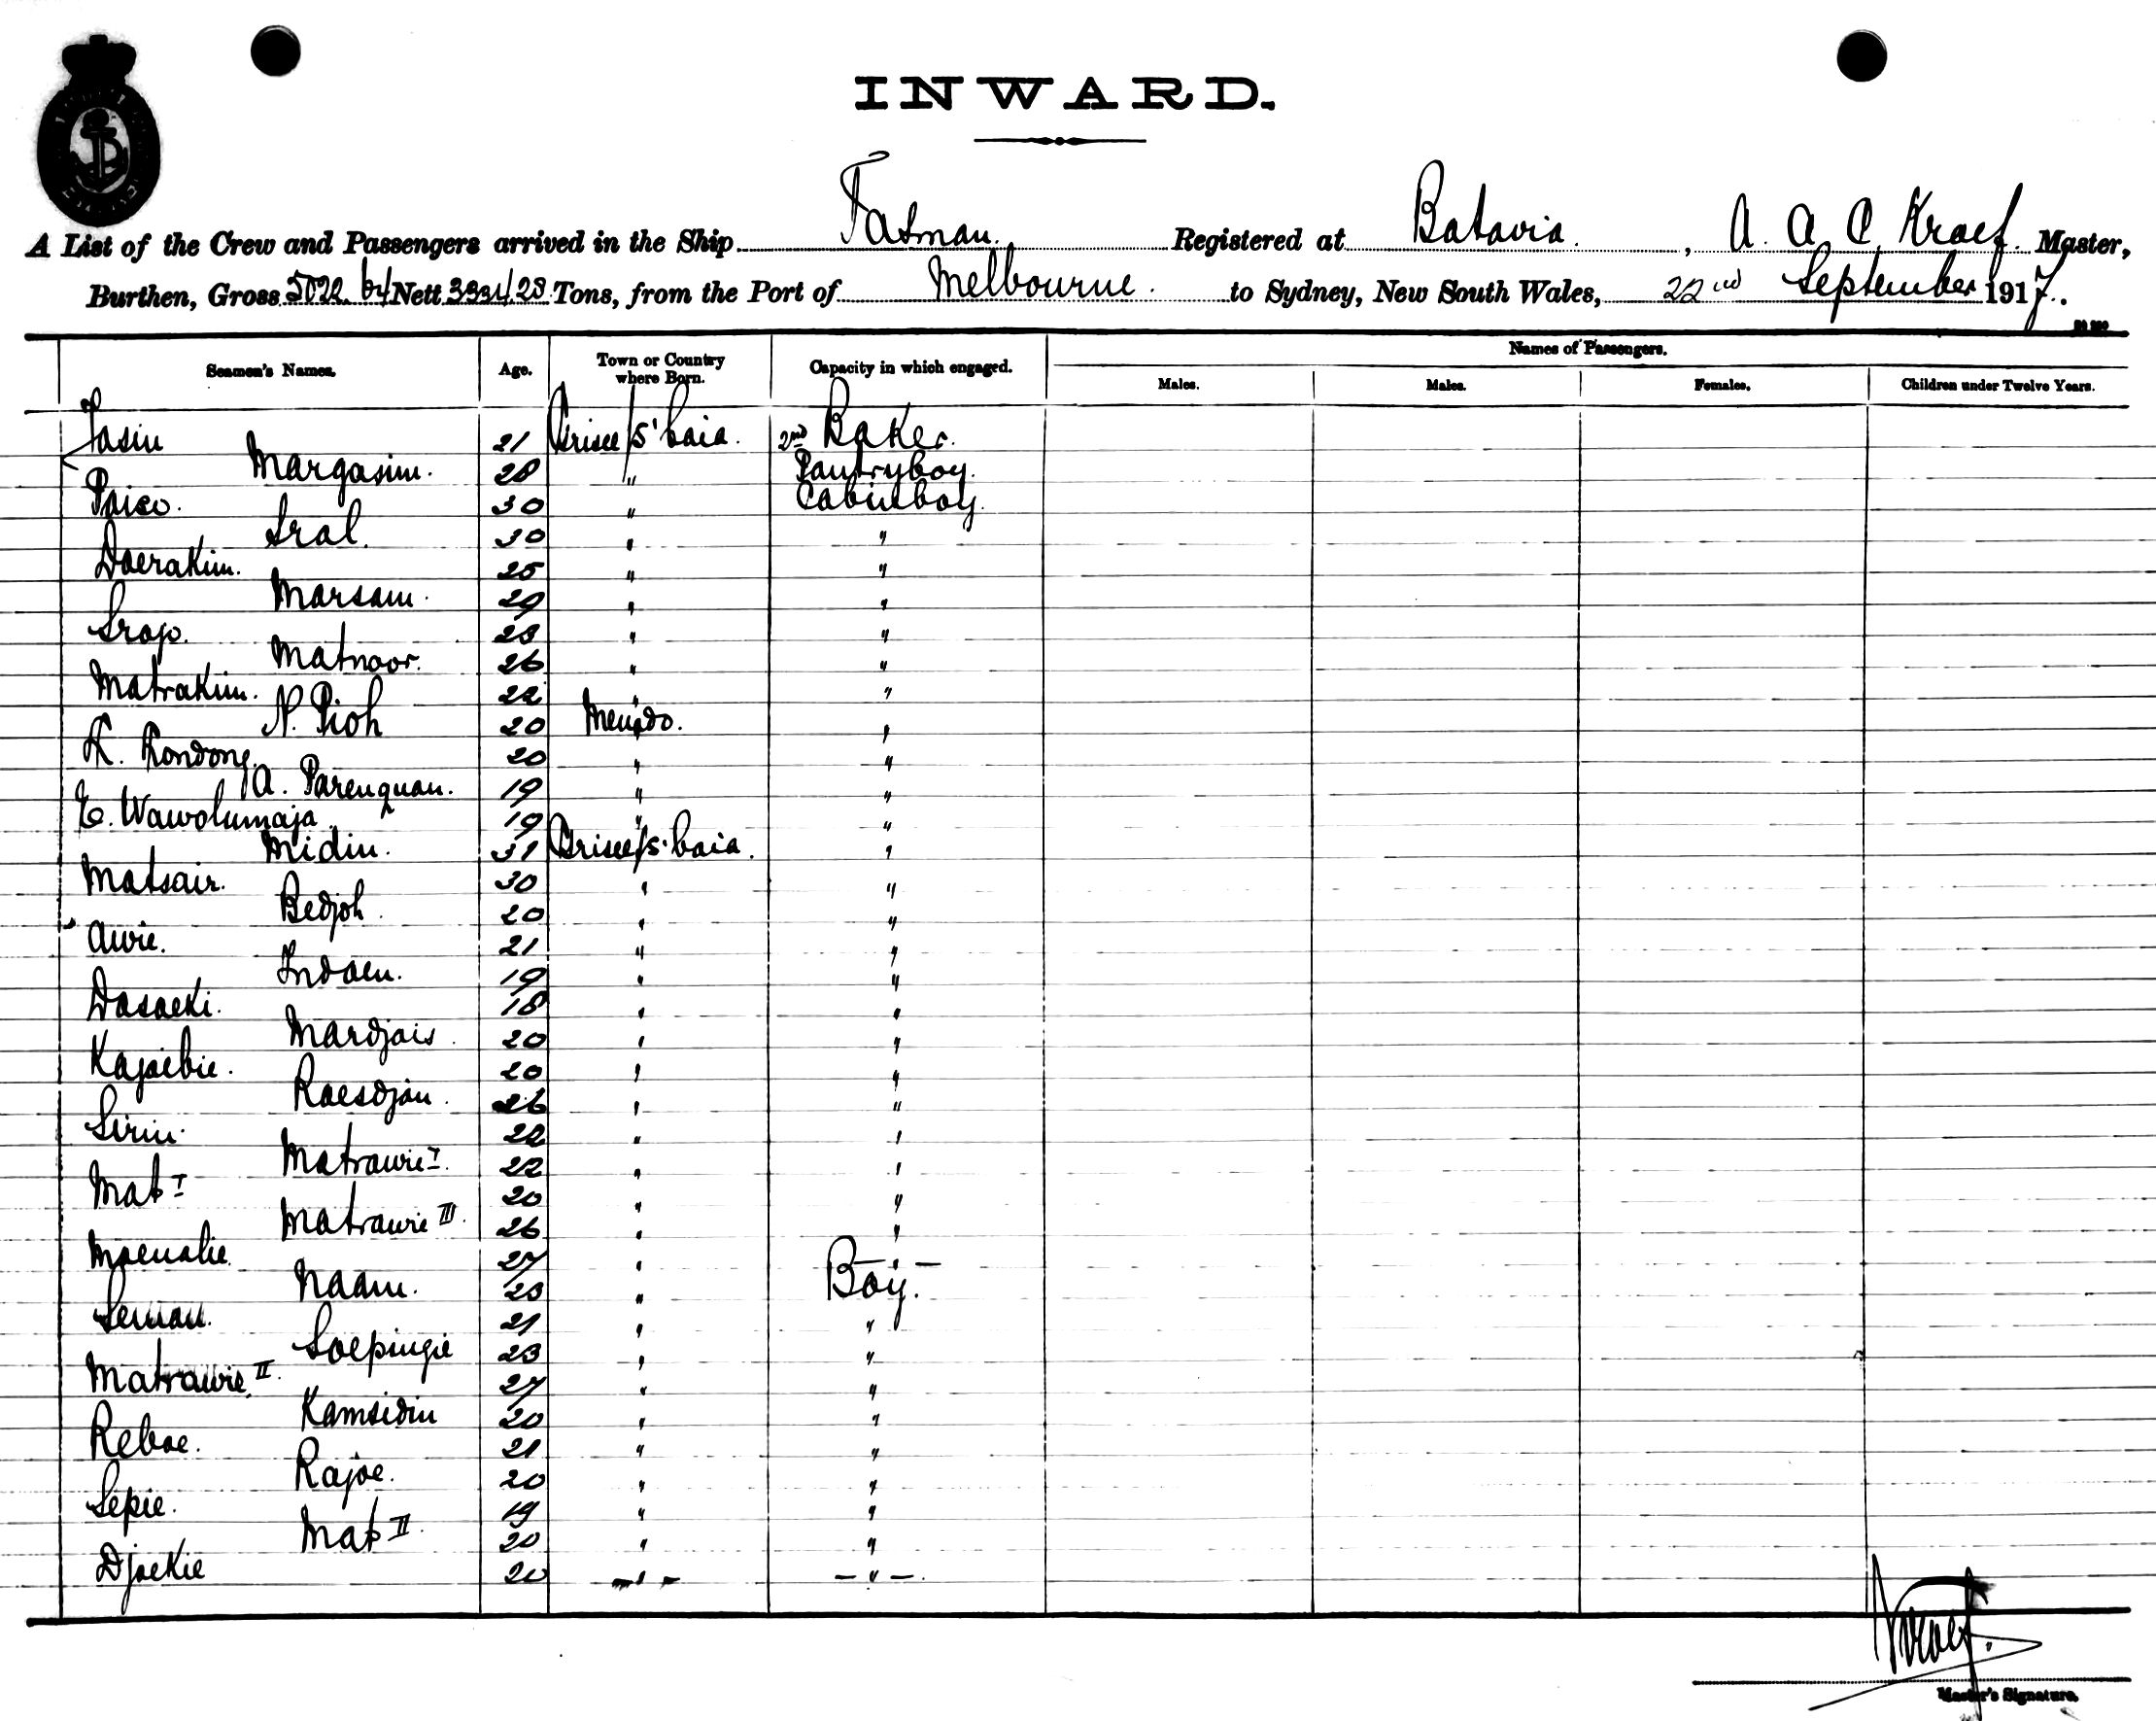 INWARD.
A List of the Crew and Passengers arrived in the Ship Tasman. Registered at Batavia. , A. A. C. Kraef. Master,
Burthen, Gross 5022.64 Nett 3231.23 Tons, from the Port of Melbourne. to Sydney, New South Wales, 22nd September 1917.
Seamen's Names. Age. Town or Country where Born. Capacity in which engaged. Names of Passengers.
Males. Males. Females. Children under Twelve Years.
Tasin 21 Grisee/S'baia. 2nd Baker.
Margasim. 28 " Pantryboy.
Paiso. 30 " Cabinboy.
Sral. 30 " "
Doerakim. 25 " "
Marsam. 29 " "
Srap. 28 " "
Matnoor. 26 " "
Matrakim. 22 " "
N. Pioh 20 Menado. "
K. Rondong. 20 " "
A. Parenquan. 19 " "
E. Wawolumaja 19 " "
Midin. 31 Grisee/S'baia. "
Matsair. 30 " "
Bedjoh. 20 " "
Awie. 21 " "
Indaen. 19 " "
Dasaeki. 18 " "
Mardjais. 20 " "
Kajoebie. 20 " "
Raesdjan. 26 " "
Sirin. 22 " "
Matrawie I. 22 " "
Mat I 20 " "
Matrawie III. 26 " "
Moenalie. 27 " - " -
Naam. 23 " Boy.
Seman. 21 " "
Soepingie 23 " "
Matrawie II. 27 " "
Kamsidin 20 " "
Reboe. 21 " "
Rajoe. 20 " "
Sepie. 19 " "
Mat II. 20 " "
Djoekie 20 - " - - " -.
Kraef.
Master's Signature.